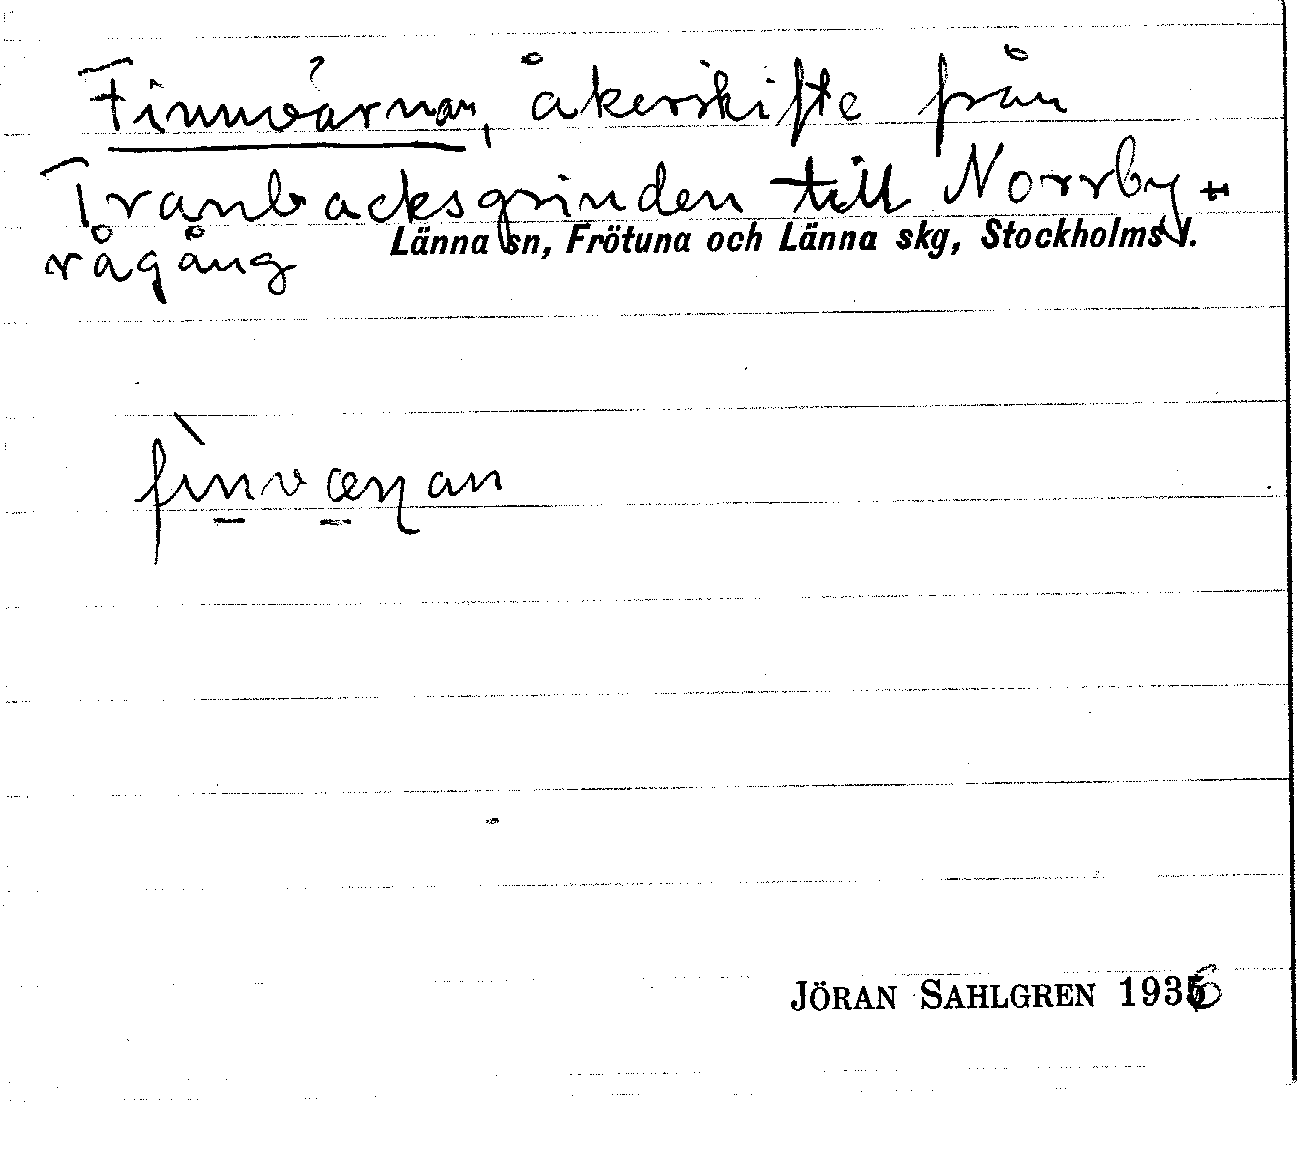 Finnvårnan, åkerskifte från
Tranbacksgrinden till Norrby-
rågång
Länna sn, Frötuna och Länna skg, Stockholms l.
fìnvæɳan
JÖRAN SAHLGREN 1936